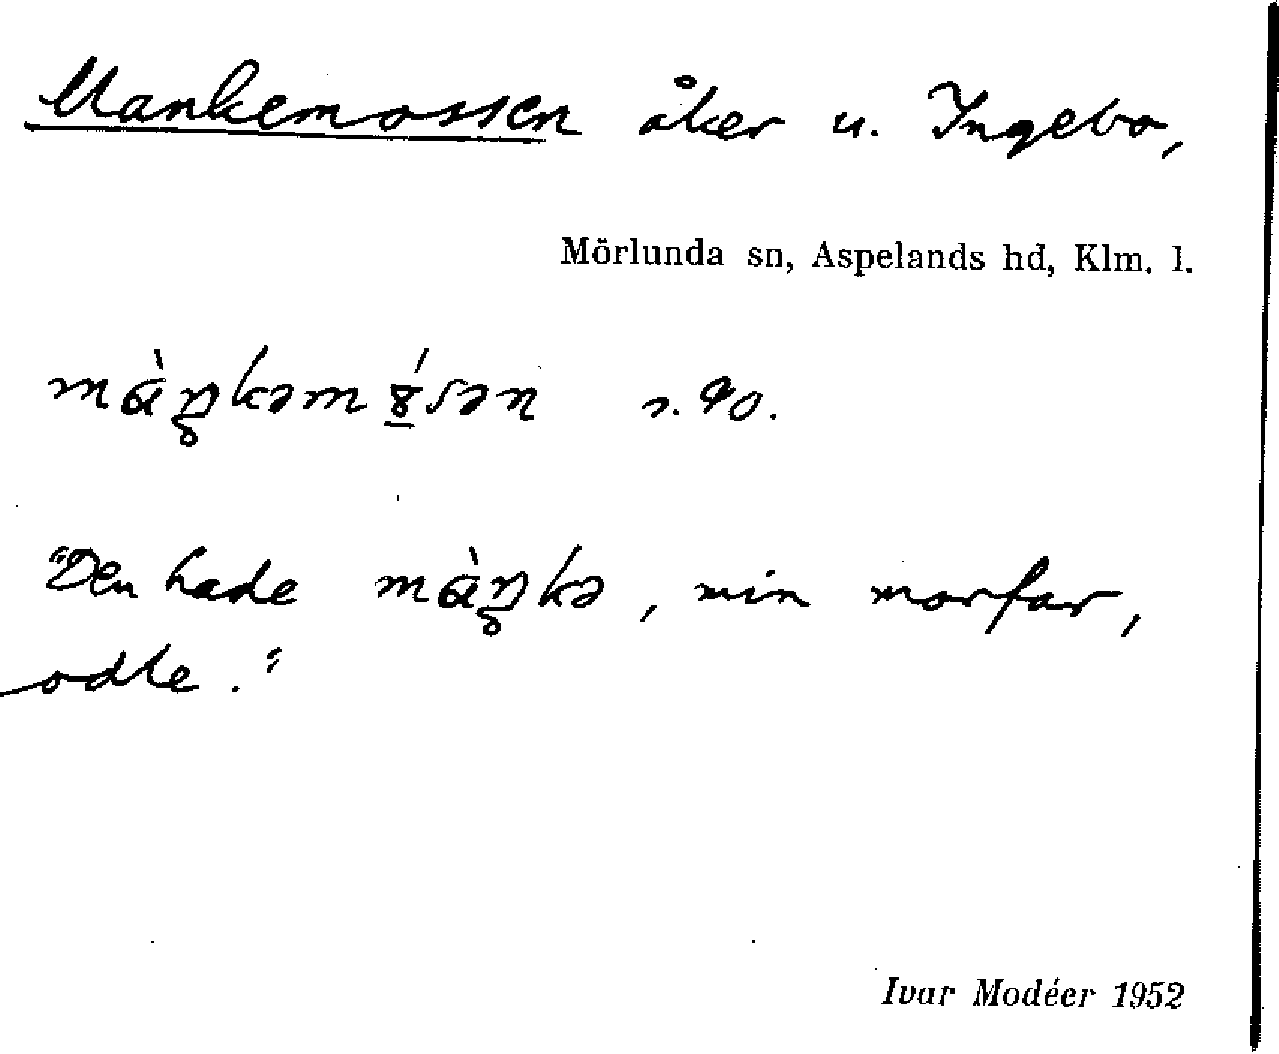 Mankemossen åker u. Ingebo,
Mörlunda sn, Aspelands hd, Klm. l.
mὰŋkəm8́sən s. 90.
"Den hade mὰŋkə, min morfar,
odle."
Ivar Modéer 1952